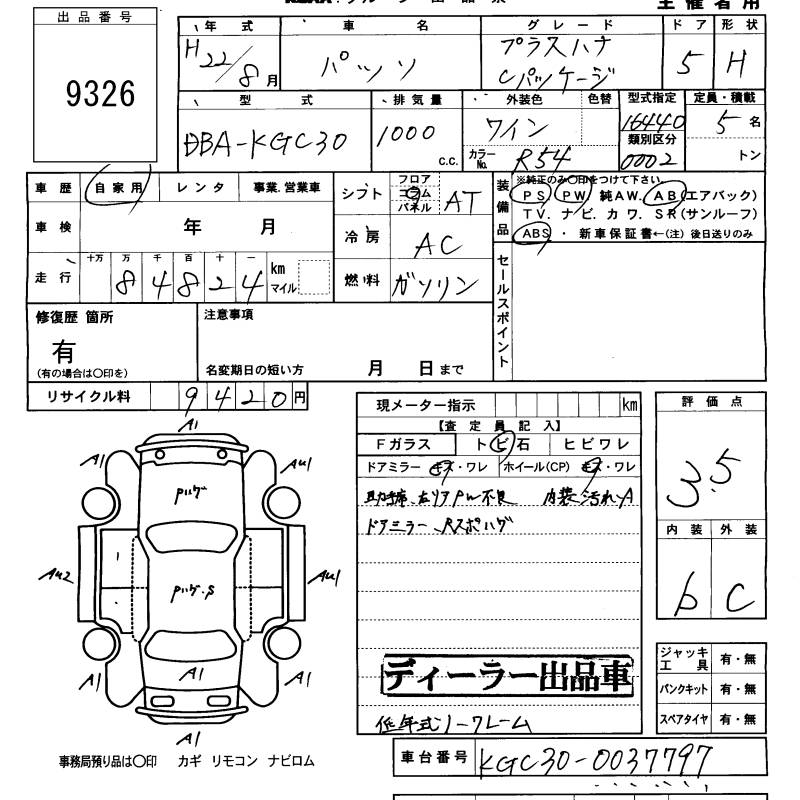 主催者用
出品番号
9326
年式 車名 グレード ドア 形状
H22/8月 パッソ プラスハナ Cパッケージ 5 H
型式 排気量 外装色 色替 型式指定 定員・積載
DBA-KGC30 1000 c.c. ワイン 16440 5名
カラーNo. R54 類別区分 0002 トン
車歴 自家用 レンタ 事業.営業車
シフト フロア コラム パネル AT
装備品 ※純正のみ○印をつけて下さい。
PS PW 純AW. AB(エアバック)
TV. ナビ. カワ. SR(サンルーフ)
ABS ・ 新車保証書←(注) 後日送りのみ
車検 年 月
冷房 AC
走行 十万 万 千 百 十 一 km マイル
84824
燃料 ガソリン
セールスポイント
修復歴 箇所
有
(有の場合は○印を)
注意事項
名変期日の短い方 月 日まで
リサイクル料 9420円
現メーター指示 km
【査定員記入】
Fガラス トビ石 ヒビワレ
ドアミラー キズ・ワレ ホイール(CP) キズ・ワレ
助手席、左リアPW不良 内装汚れA
ドアミラー、Rスポハゲ
評価点
3.5
内装 外装
b C
A1
A1 AU1
ハゲ
AU2 AU1
ハゲ.S
A1 A1 A1
A1
ディーラー出品車
低年式ノークレーム
ジャッキ工具 有・無
パンクキット 有・無
スペアタイヤ 有・無
車台番号 KGC30-0037797
事務局預り品は○印 カギ リモコン ナビロム